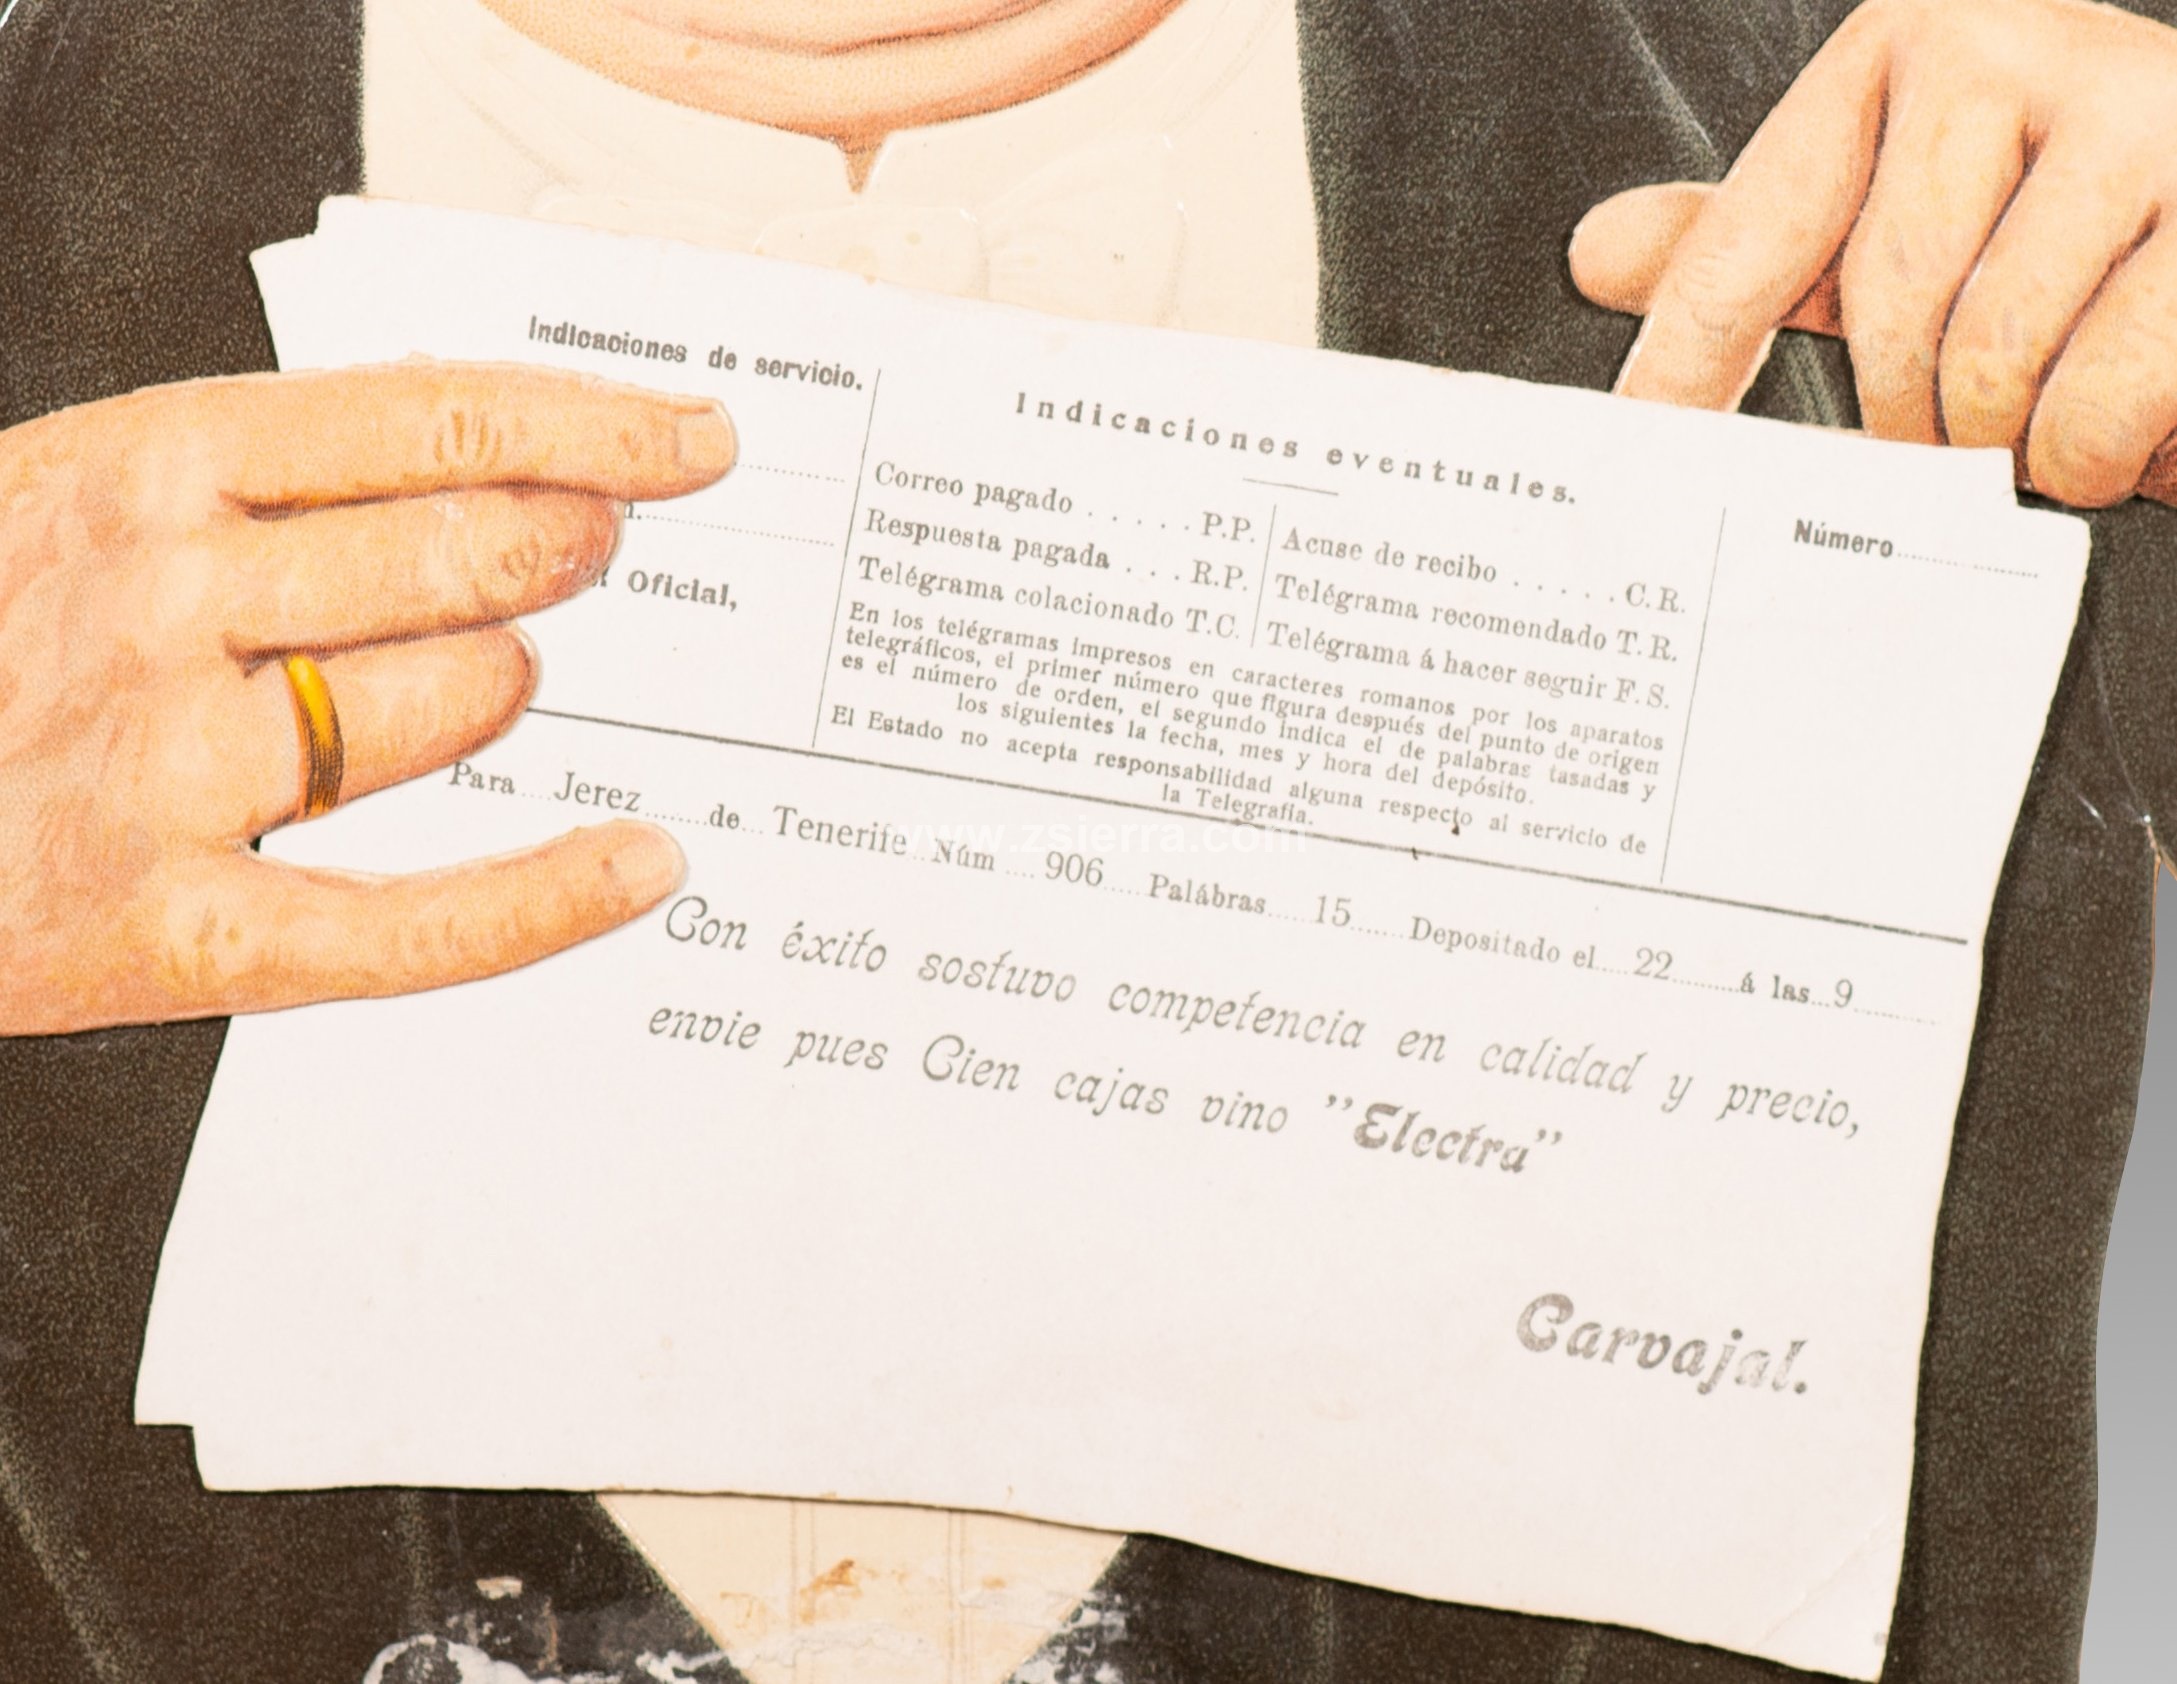 Indicaciones de servicio.
Oficial,
Indicaciones eventuales.
Correo pagado . . . . . P.P.
Respuesta pagada . . . R.P.
Telégrama colacionado T.C.
Acuse de recibo . . . . . C.R.
Telégrama recomendado T.R.
Telégrama á hacer seguir F.S.
En los telégramas impresos en caracteres romanos por los aparatos
telegráficos, el primer número que figura después del punto de origen
es el número de orden, el segundo indica el de palabras tasadas y
los siguientes la fecha, mes y hora del depósito.
El Estado no acepta responsabilidad alguna respecto al servicio de
la Telegrafia.
Número
Para Jerez de Tenerife Núm 906 Palábras 15 Depositado el 22 á las 9
Con éxito sostuvo competencia en calidad y precio,
envie pues Cien cajas vino "Electra"
Carvajal.
www.zsierra.com